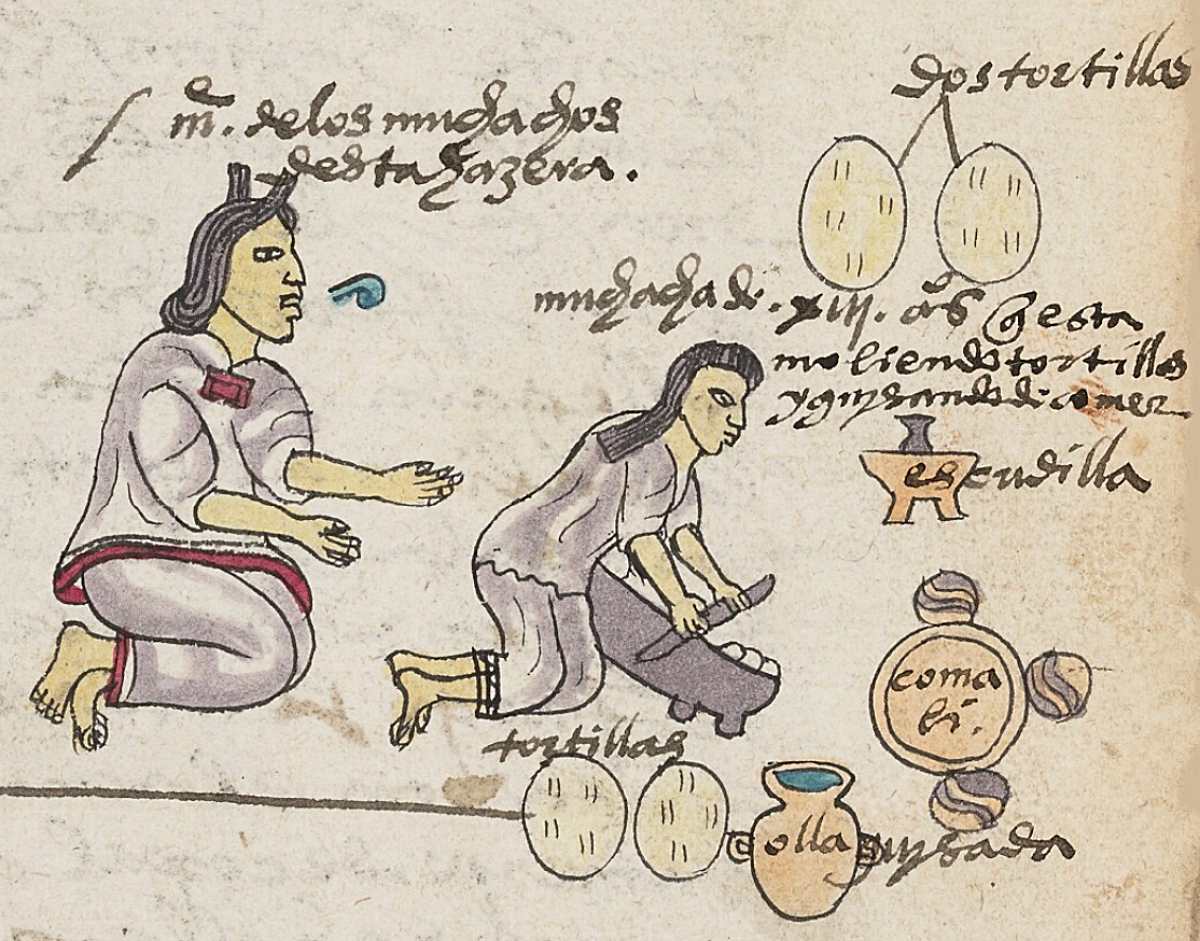 dos tortillas
mᵉ. de los muchachos
desta hazera.
muchacha de. xiii. aºs q̃ esta
moliendo tortillas
y guisando de comer
escudilla
comali.
tortillas
olla guisada